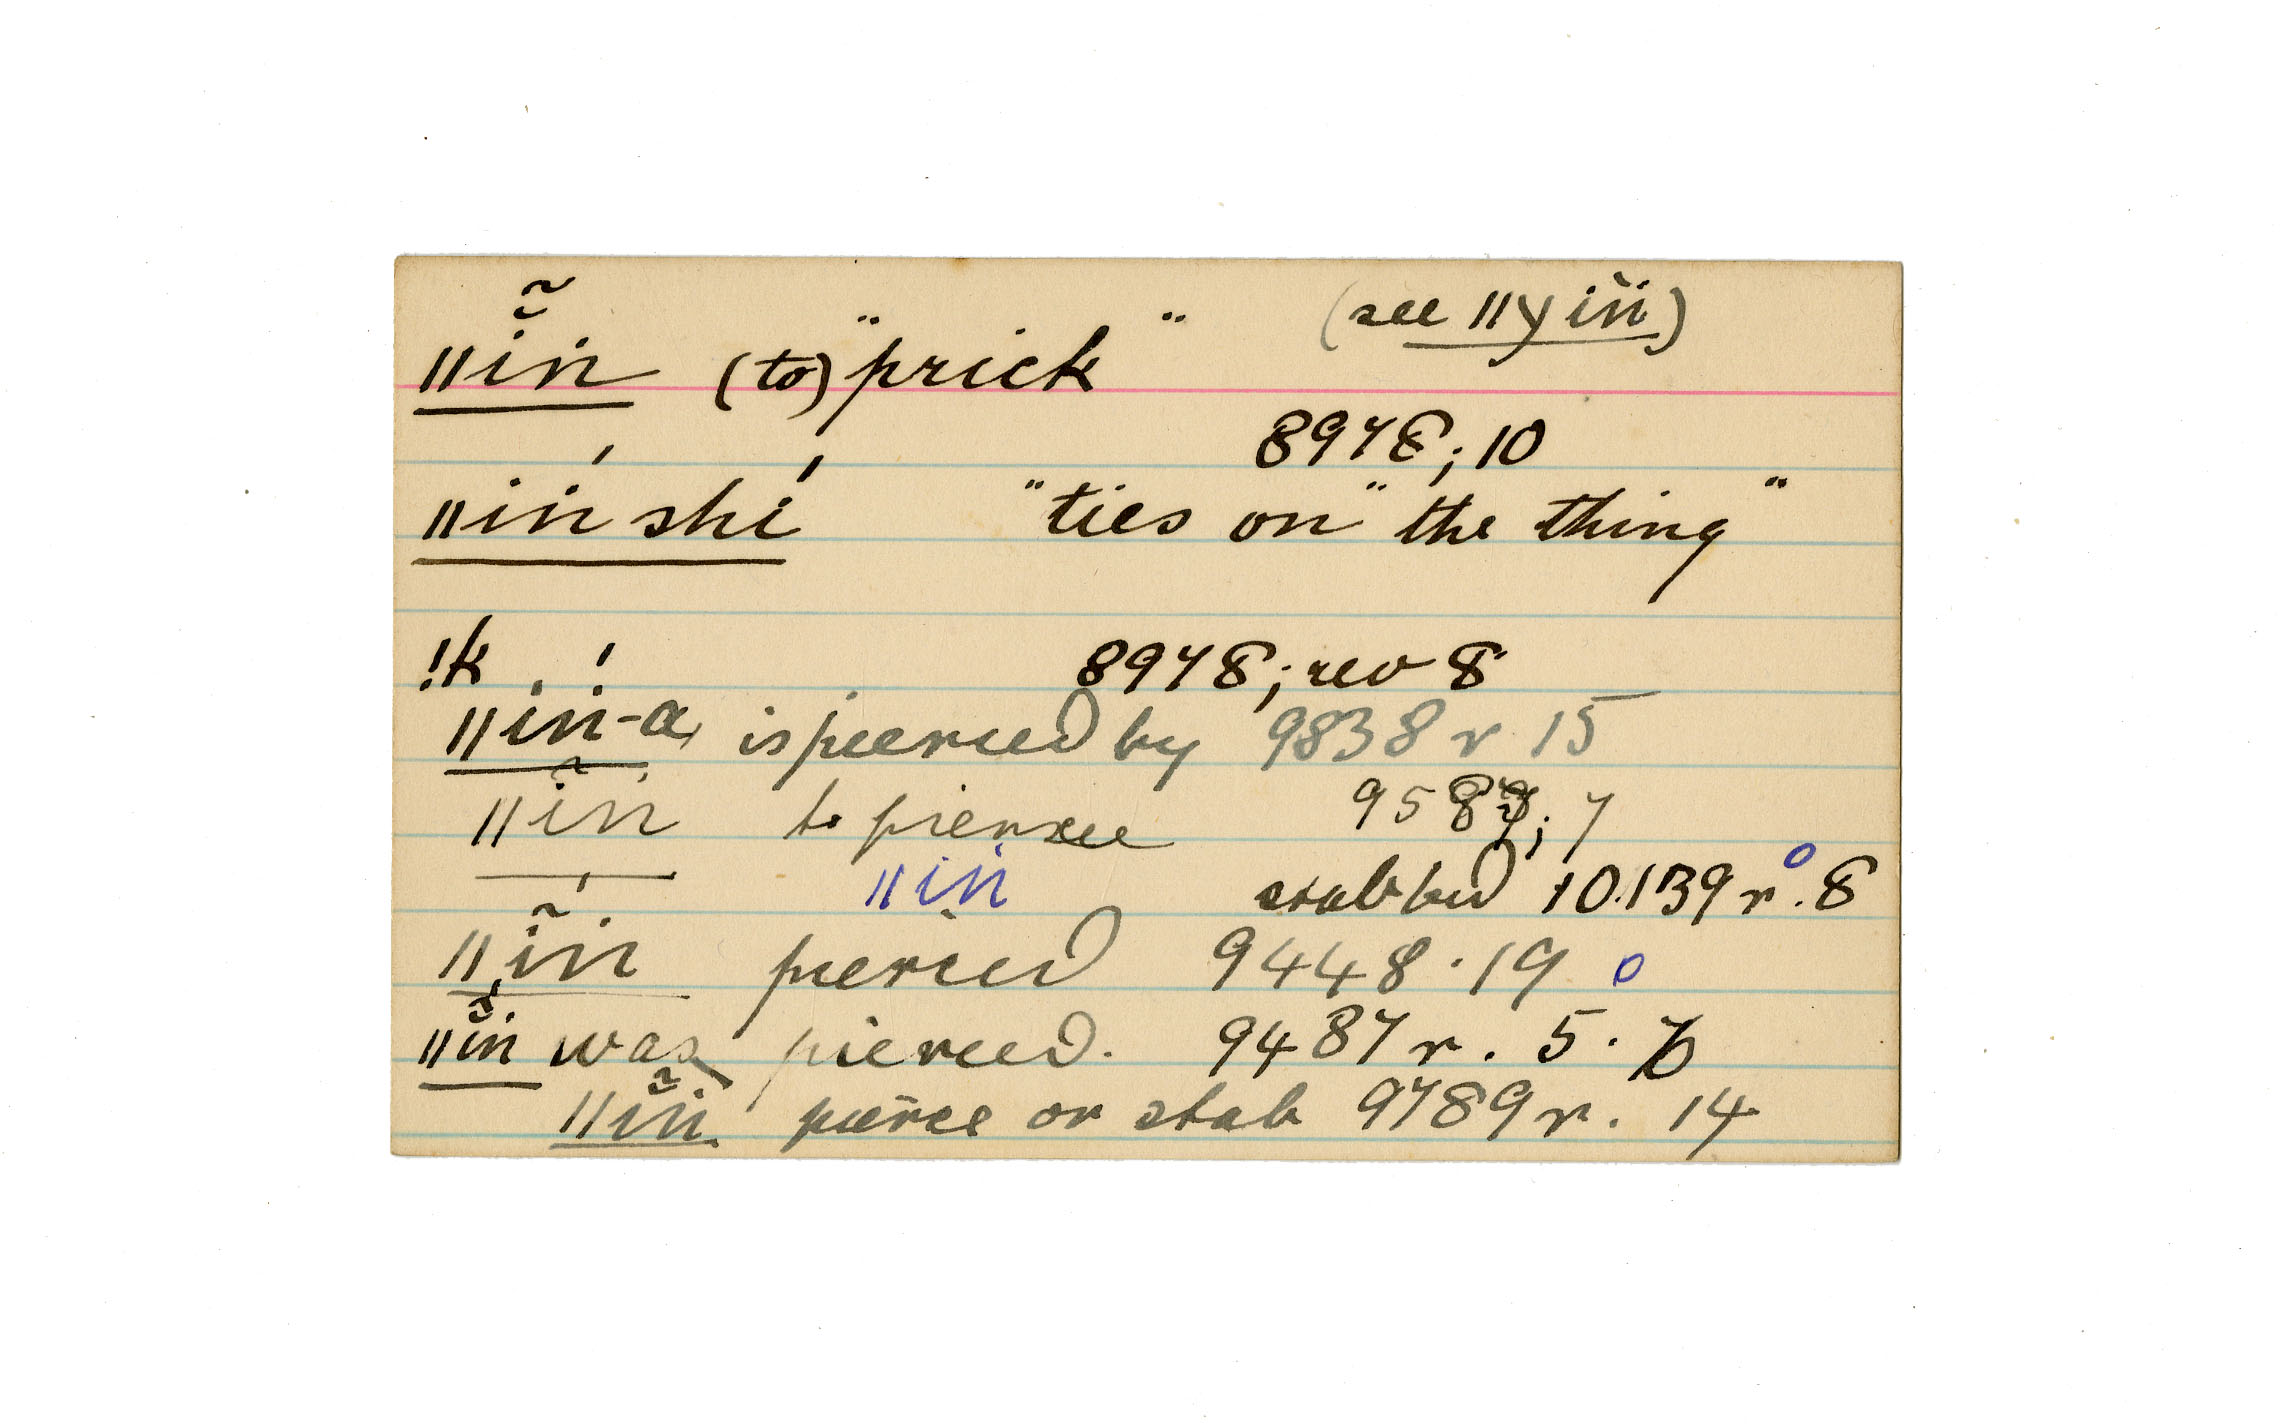 ǁĩ̆ṅ (to) "prick" (see ǁχĭṅ)
8978; 10
ǁiṅ´ shí "ties on" the thing"
!k 8978; rev 8
ǁiṅ´-a is pierced by 9838 r 15
ǁĩṅ to pierce 9587; 7
ǁiṅ stabbed 10.139 r. 8
ǁĩṅ pierced 9448 . 19
ǁĩ̆ṅ was pierced. 9487 r. 5.
ǁĩ̆ṅ pierce or stab 9789 r. 14